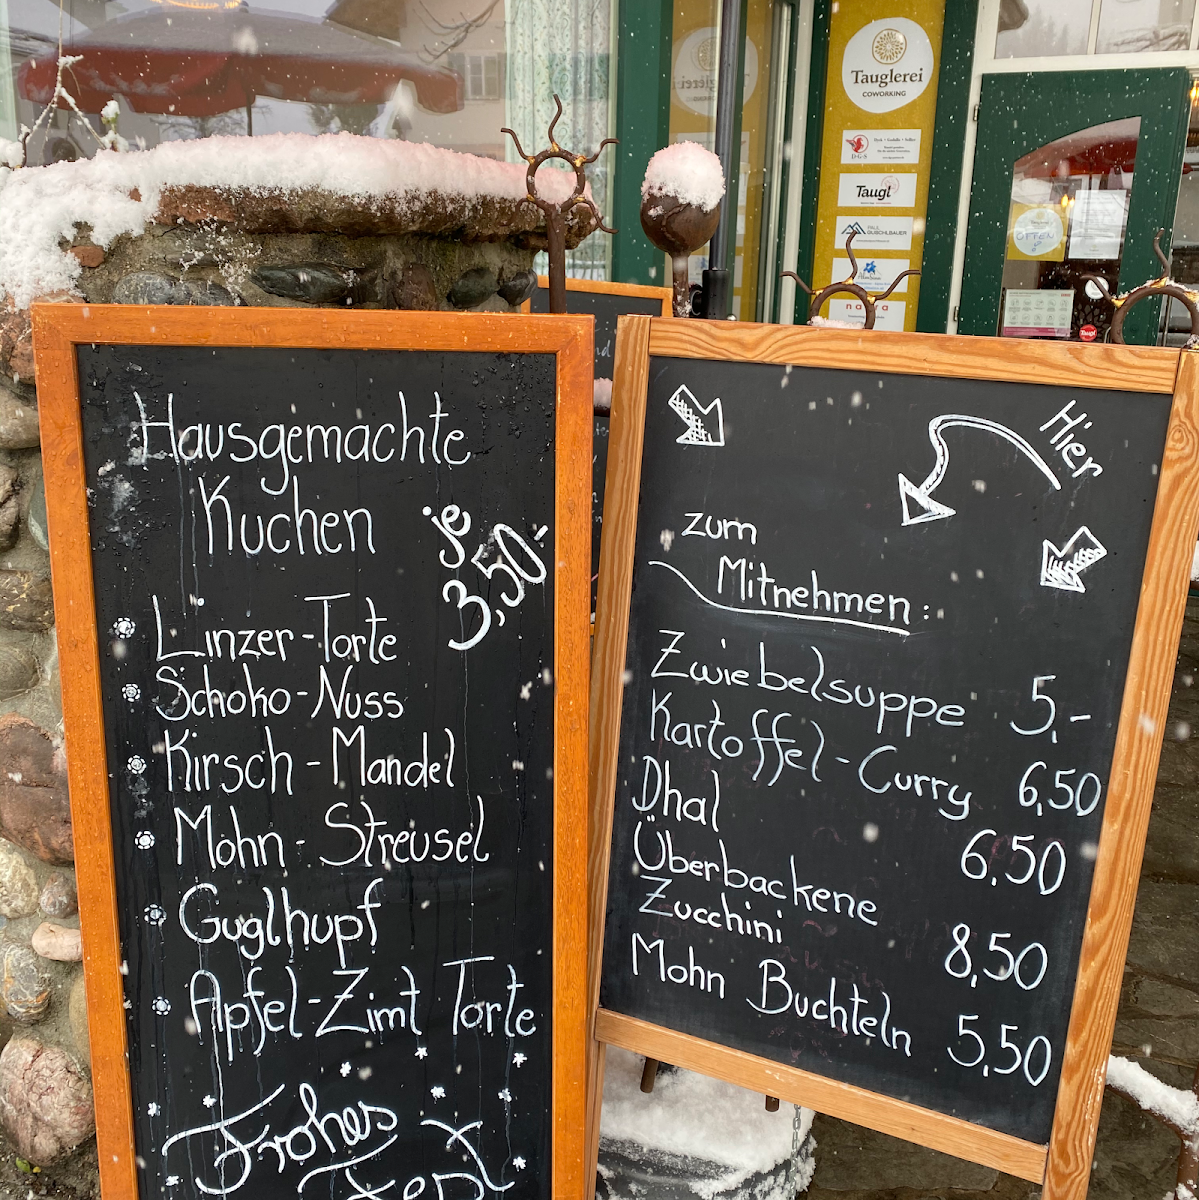 Hausgemachte
Kuchen
je
3,50-
Linzer-Torte
Schoko-Nuss
Kirsch-Mandel
Mohn-Streusel
Guglhupf
Apfel-Zimt Torte
Frohes
Hier
zum
Mitnehmen:
Zwiebelsuppe 5,-
Kartoffel-Curry 6,50
Dhal 6,50
Überbackene
Zucchini 8,50
Mohn Buchteln 5,50
Tauglerei
COWORKING
D·G·S
Taugl
PAUL
GUSCHLBAUER
OFFEN
Taugl